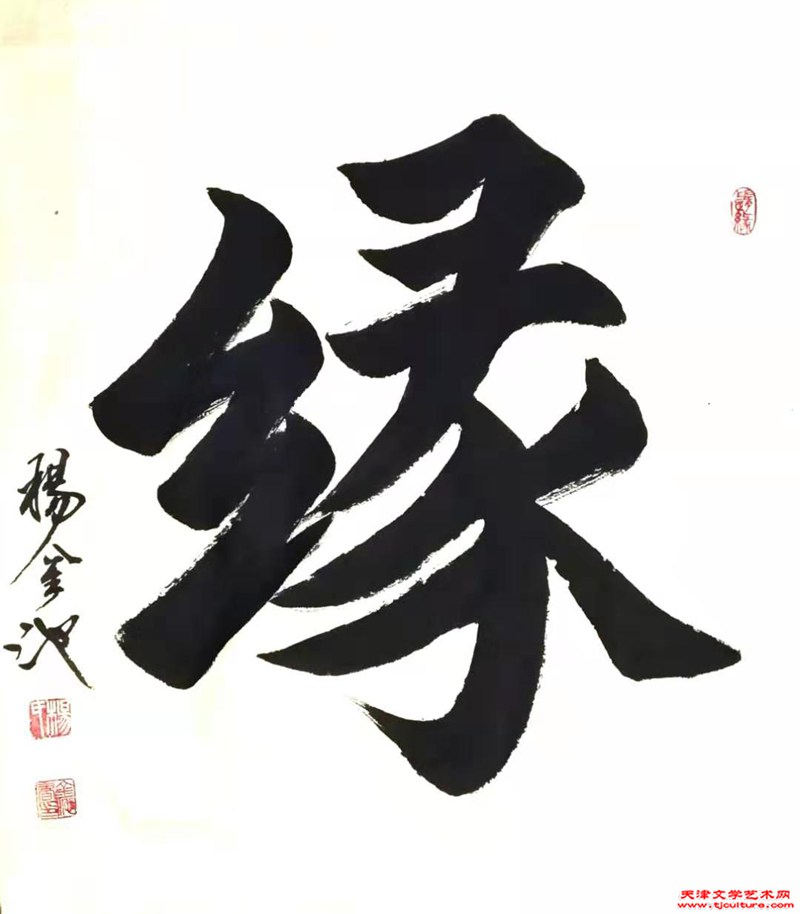 缘
楊金池
天津文学艺术网
www.tjculture.com